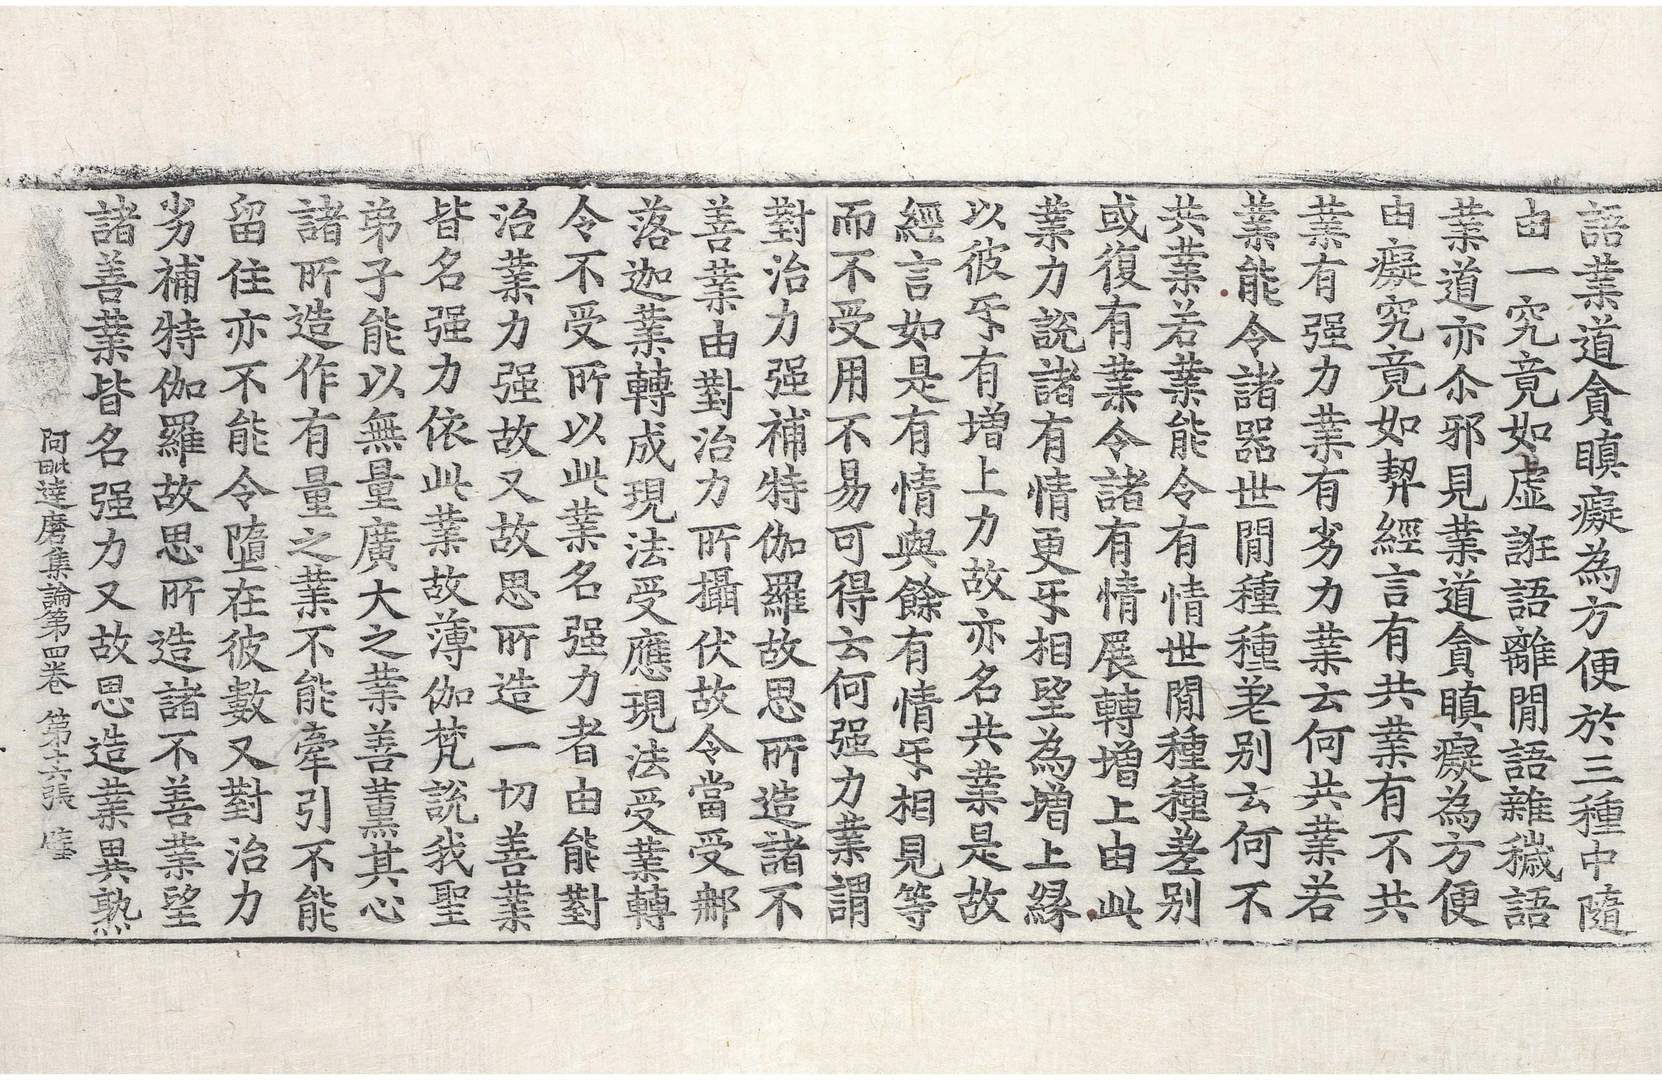 語業道貪瞋癡為方便於三種中隨
由一究竟如虛誑語離閒語雜穢語
業道亦尒邪見業道貪瞋癡為方便
由癡究竟如契經言有共業有不共
業有强力業有劣力業云何共業若
業能令諸器世閒種種差別云何不
共業若業能令有情世閒種種差別
或復有業令諸有情展轉增上由此
業力說諸有情更㸦相望為增上緣
以彼㸦有增上力故亦名共業是故
經言如是有情與餘有情㸦相見等
而不受用不易可得云何强力業謂
對治力强補特伽羅故思所造諸不
善業由對治力所攝伏故令當受㮈
落迦業轉成現法受應現法受業轉
令不受所以此業名强力者由能對
治業力强故又故思所造一切善業
皆名强力依此業故薄伽梵說我聖
弟子能以無量廣大之業善薰其心
諸所造作有量之業不能牽引不能
留住亦不能令墮在彼數又對治力
劣補特伽羅故思所造諸不善業望
諸善業皆名强力又故思造業異熟
阿毗達磨集論第四卷 第十六張